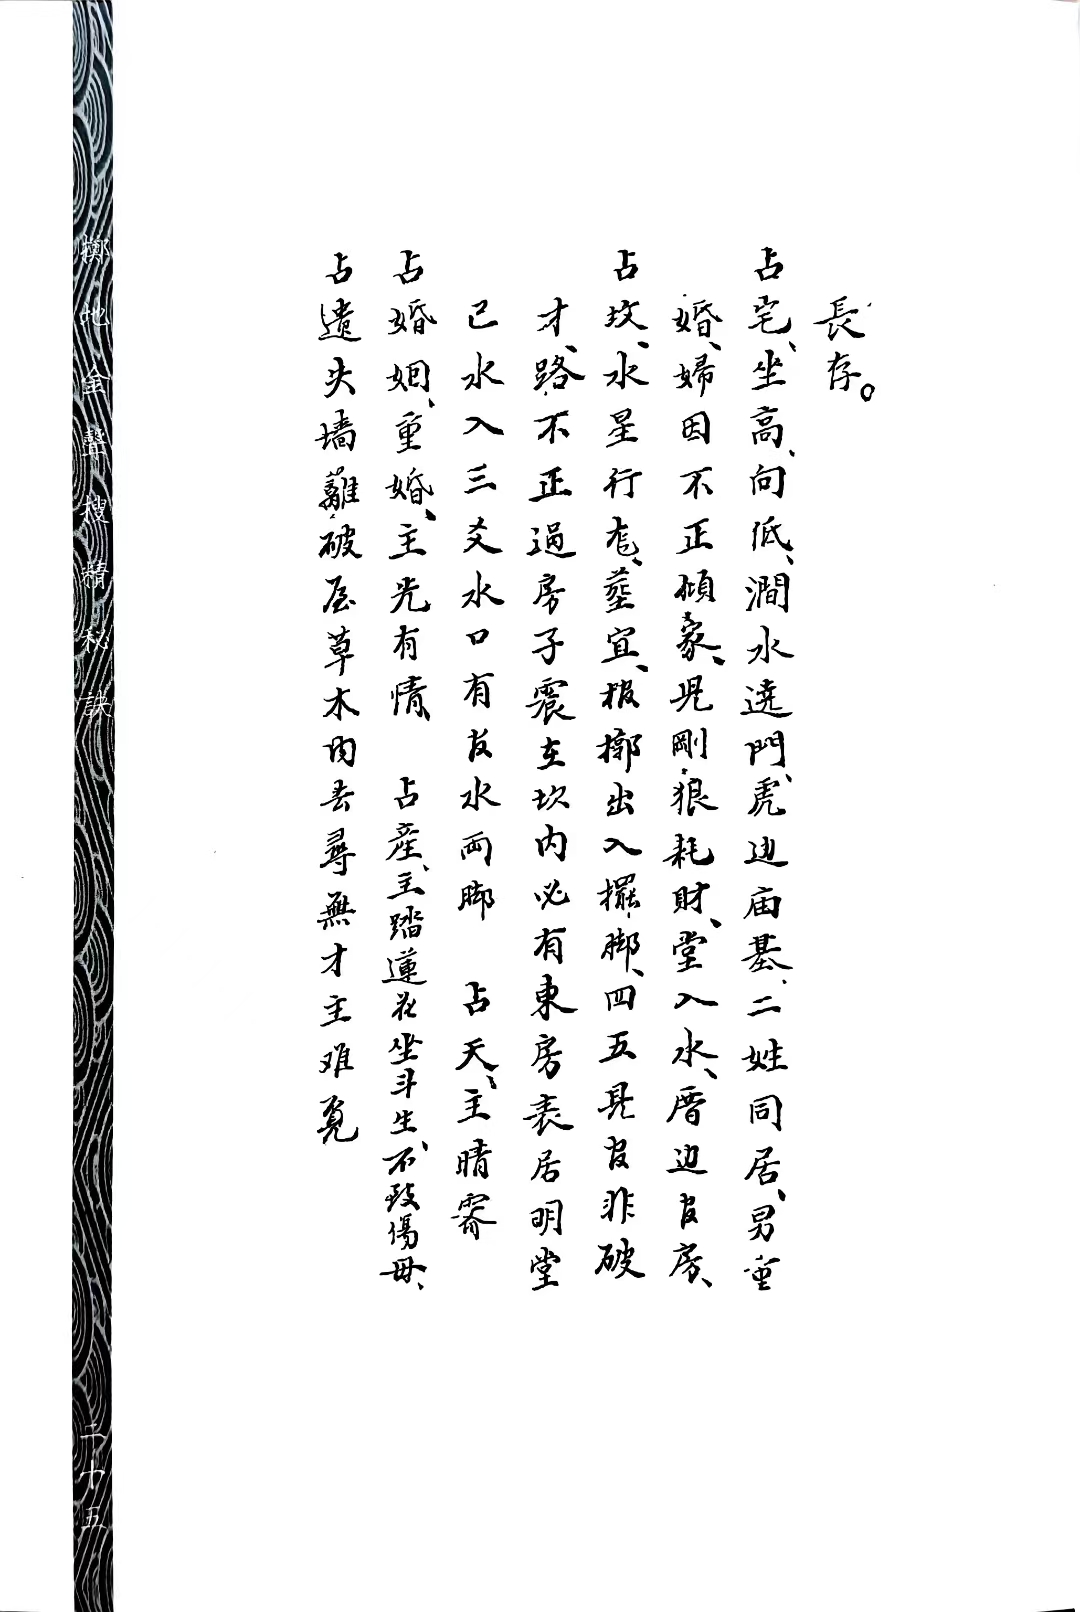 長存。
占宅、坐高、向低、澗水遶門、虎边庙基、二姓同居、男重
婚、婦因不正傾家、児剛狼耗財、堂入水、厝边有房、
占坟、水星行竜、塟宜、棺槨出入擺脚、四五見官非破
才、路不正過房子震在坎内必有東房表居明堂
已水入三爻水口有官水両脚　占天、主晴霽
占婚姻、重婚、主先有情、　占産、主踏蓮花坐斗生、不致傷母、
占遺失墙離破屋草木内去尋無才主难覓
擲地金聲搜精秘訣
二十五